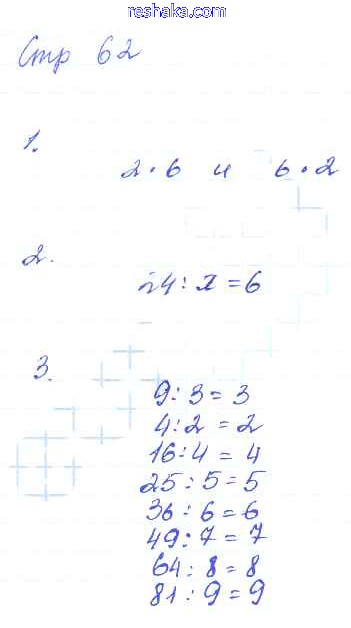 reshaka.com
Стр 62
1.
2 · 6 и 6 · 2
2.
24 : x = 6
3.
9 : 3 = 3
4 : 2 = 2
16 : 4 = 4
25 : 5 = 5
36 : 6 = 6
49 : 7 = 7
64 : 8 = 8
81 : 9 = 9